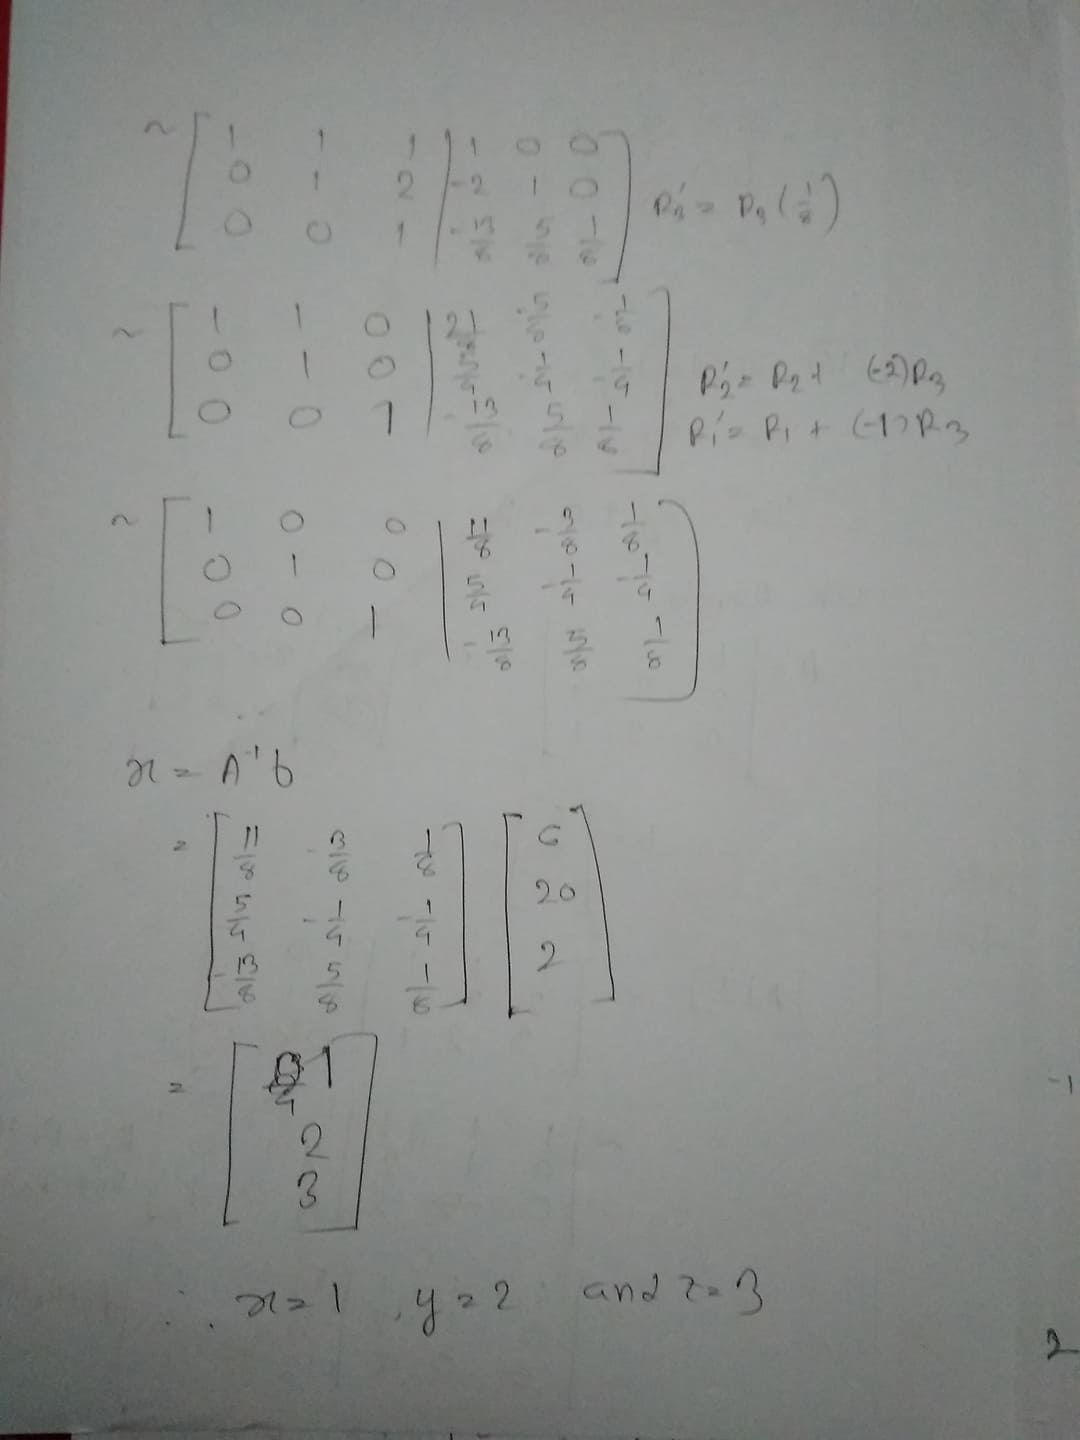 ~ [ 1 1 1 | 1 0 0 ]
[ 0 1 2 | -2 1 0 ]
[ 0 0 1 | -13/8 5/8 1/8 ] R3' = R3 (1/8)
~ [ 1 1 0 | 21/8 -5/8 -1/8 ]
[ 0 1 0 | 5/4 -1/4 -1/4 ] R2' = R2 + (-2)R3
[ 0 0 1 | -13/8 5/8 1/8 ] R1' = R1 + (-1)R3
~ [ 1 0 0 | 11/8 -3/8 1/8 ]
[ 0 1 0 | 5/4 -1/4 -1/4 ]
[ 0 0 1 | -13/8 5/8 1/8 ]
x = A⁻¹b
= [ 11/8 -3/8 1/8 ] [ 6 ]
[ 5/4 -1/4 -1/4 ] [ 20 ]
[ -13/8 5/8 1/8 ] [ 2 ]
= [ 1 ]
[ 2 ]
[ 3 ]
∴ x = 1, y = 2 and z = 3
-1
2